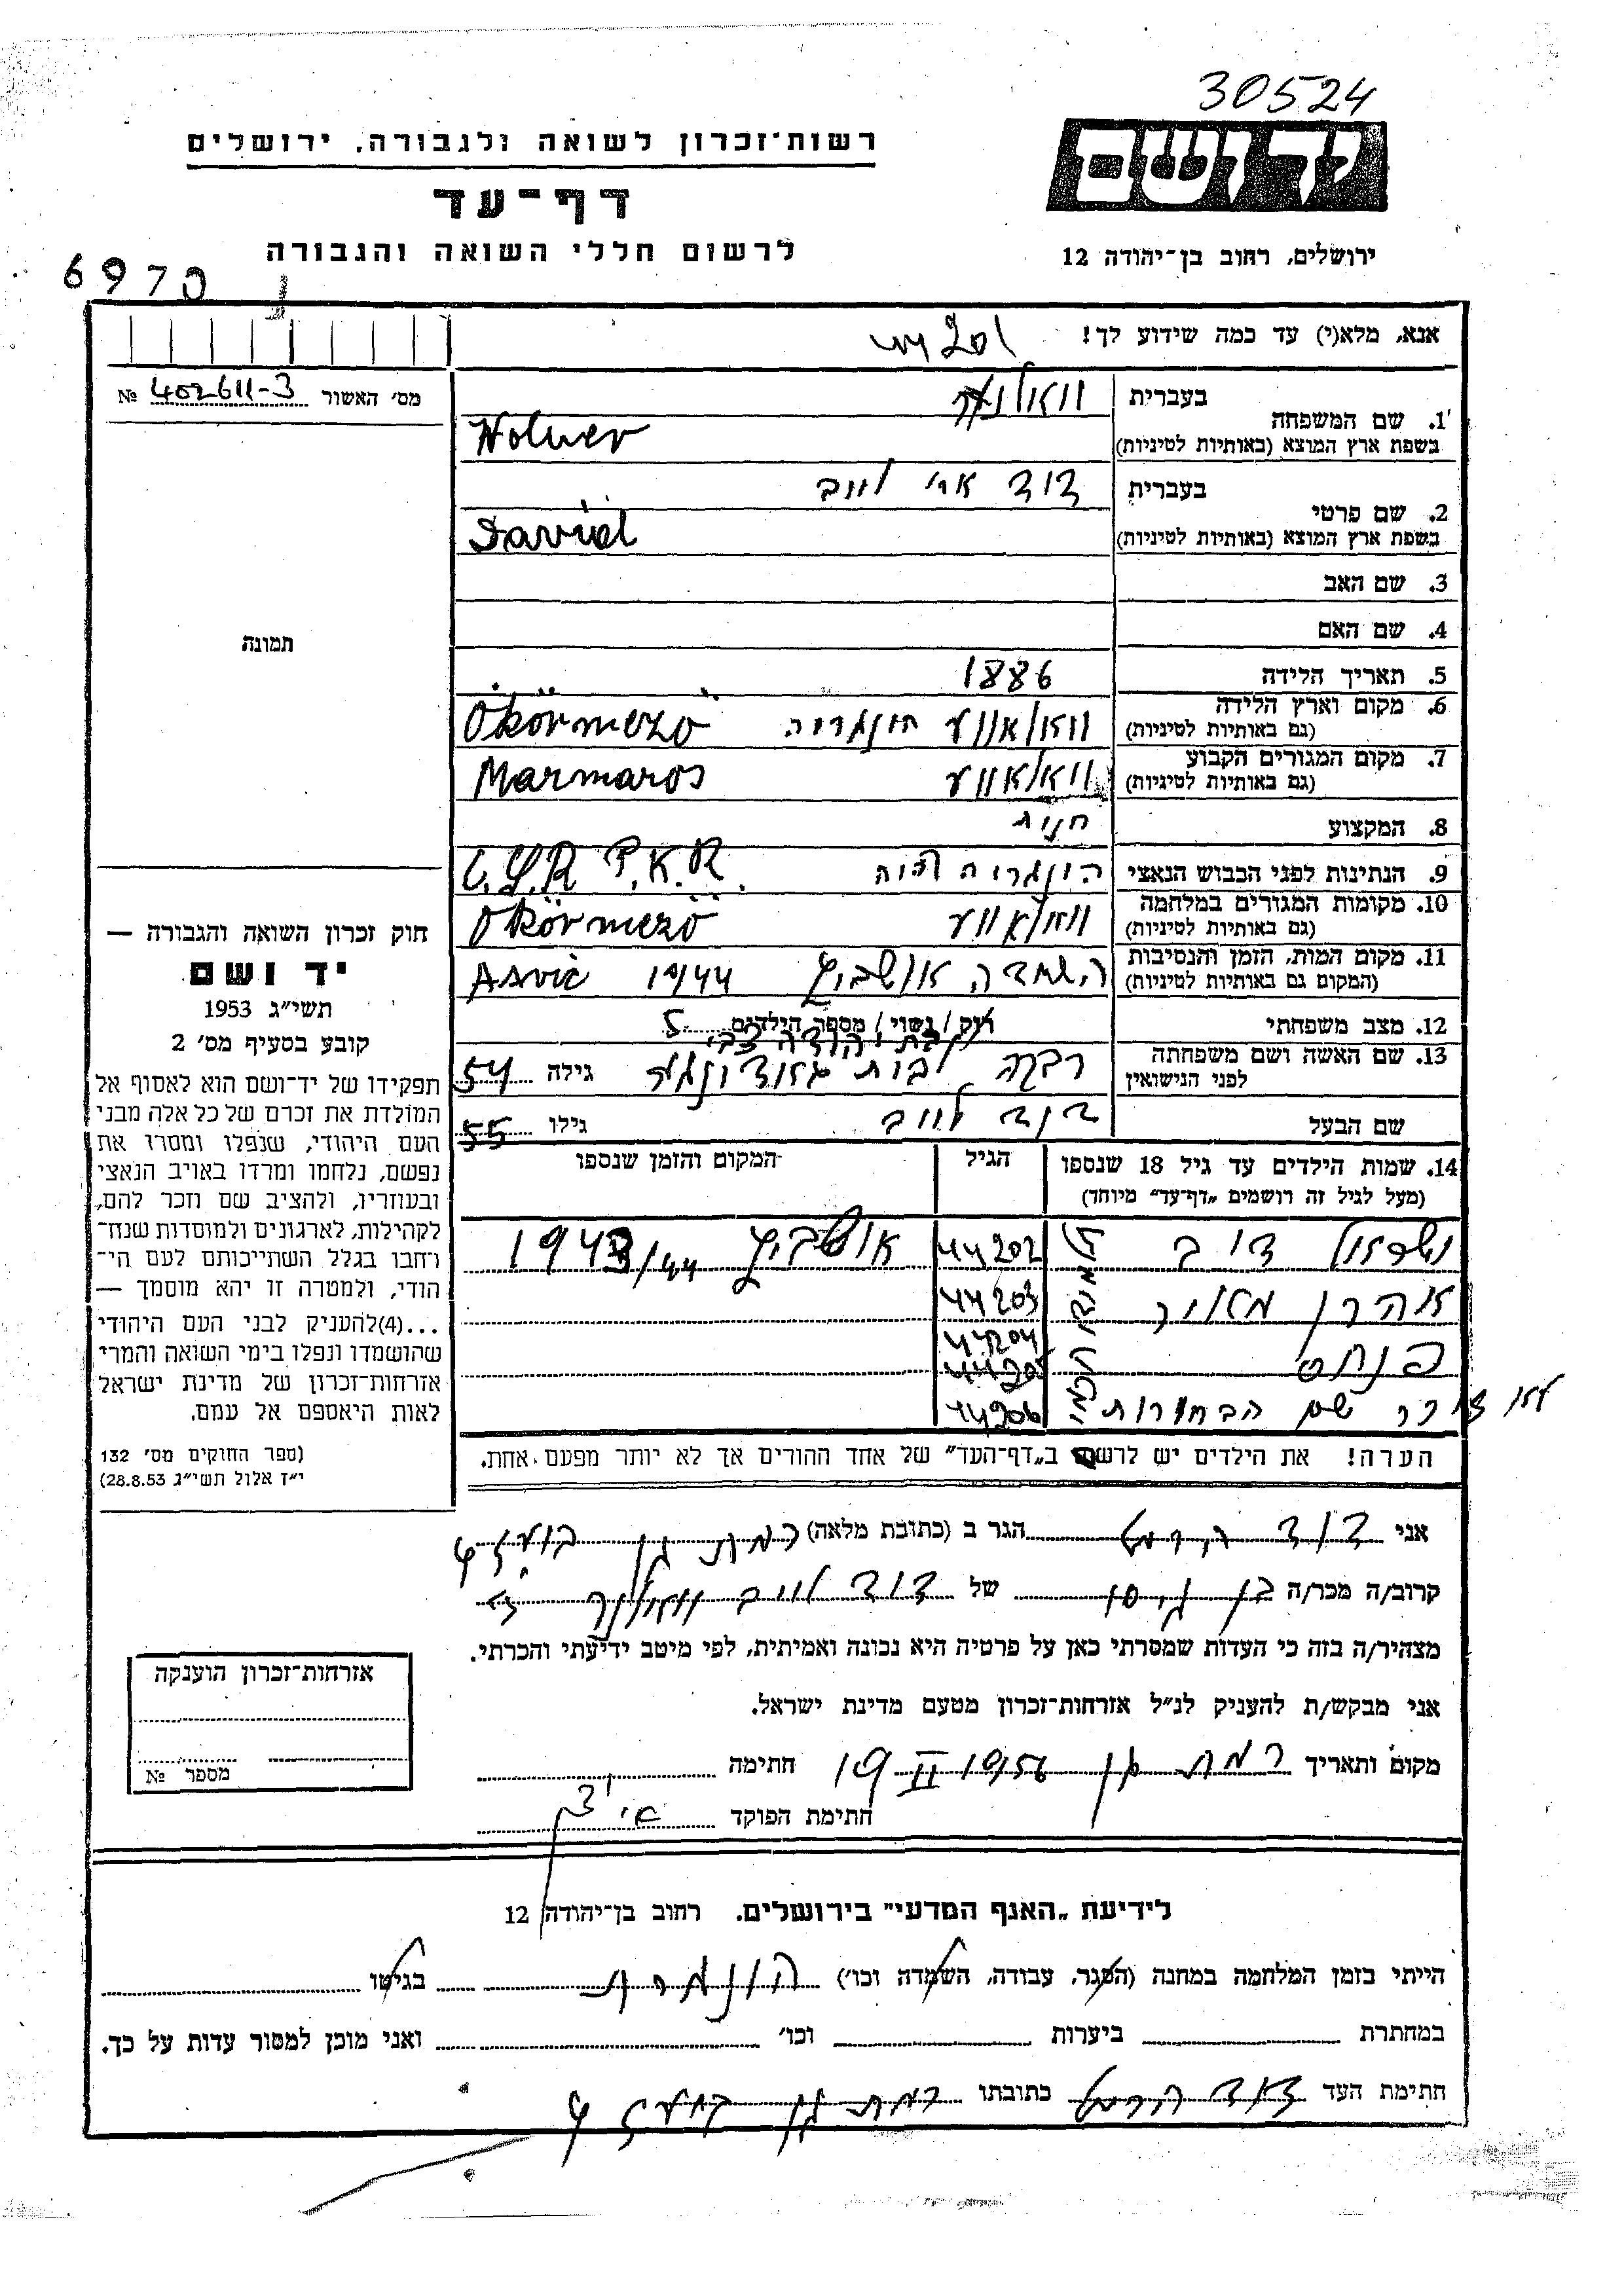 30524
רשות־זכרון לשואה ולגבורה, ירושלים
יד ושם
דף־עד
לרשום חללי השואה והגבורה
ירושלים, רחוב בן־יהודה 12
6970
אנא, מלא(י) עד כמה שידוע לך!
מס׳ האשור № 402611-3
1. שם המשפחה
בעברית
בשפת ארץ המוצא (באותיות לטיניות) Wolner
2. שם פרטי
בעברית דוד ארי לייב
בשפת ארץ המוצא (באותיות לטיניות) David
3. שם האב
4. שם האם
תמונה
5. תאריך הלידה 1886
6. מקום וארץ הלידה (גם באותיות לטיניות) וואלאווע Ökörmező
7. מקום המגורים הקבוע (גם באותיות לטיניות) וואלאווע Marmaros
8. המקצוע
9. הנתינות לפני הכבוש הנאצי P.K.R.
10. מקומות המגורים במלחמה (גם באותיות לטיניות) וואלאווע Ökörmező
11. מקום המות, הזמן והנסיבות (המקום גם באותיות לטיניות) השמדה אושביץ 1944 Asvic
12. מצב משפחתי רוק / נשוי / מספר הילדים 5
13. שם האשה ושם משפחתה לפני הנישואין רבקה גילה 54
שם הבעל דוד לייב גילו 55
14. שמות הילדים עד גיל 18 שנספו (מעל לגיל זה רושמים „דף־עד״ מיוחד)
הגיל
המקום והזמן שנספו
דוב 44202 אושביץ 1943/44
אהרן מאיר 44203
פנחס 44204
44205
לא זוכר שם הבחורות 44206
הערה! את הילדים יש לרשום ב„דף־העד״ של אחד ההורים אך לא יותר מפעם אחת.
חוק זכרון השואה והגבורה —
יד ושם
תשי״ג 1953
קובע בסעיף מס׳ 2
תפקידו של יד־ושם הוא לאסוף אל
המולדת את זכרם של כל אלה מבני
העם היהודי, שנפלו ומסרו את
נפשם, נלחמו ומרדו באויב הנאצי
ובעוזריו, ולהציב שם וזכר להם,
לקהילות, לארגונים ולמוסדות שנח־
רחבו בגלל השתייכותם לעם הי־
הודי, ולמטרה זו יהא מוסמך —
...(4)להעניק לבני העם היהודי
שהושמדו ונפלו בימי השואה והמרי
אזרחות־זכרון של מדינת ישראל
לאות היאספם אל עמם.
(ספר החוקים מס׳ 132
י״ז אלול תשי״ג 28.8.53)
אני דוד הגר ב (כתובת מלאה) רמת גן
קרוב/ה מכר/ה בן גיסו של דוד לייב
מצהיר/ה בזה כי העדות שמסרתי כאן על פרטיה היא נכונה ואמיתית, לפי מיטב ידיעתי והכרתי.
אני מבקש/ת להעניק לנ״ל אזרחות־זכרון מטעם מדינת ישראל.
מקום ותאריך רמת גן 19 II 1956 חתימה
חתימת הפוקד
אזרחות־זכרון הוענקה
מספר №
לידיעת „האגף המדעי״ בירושלים. רחוב בן־יהודה 12
הייתי בזמן המלחמה במחנה (הסגר, עבודה, השמדה וכו׳) בגיטו
במחתרת ביערות וכו׳ ואני מוכן למסור עדות על כך.
חתימת העד דוד כתובתו רמת גן